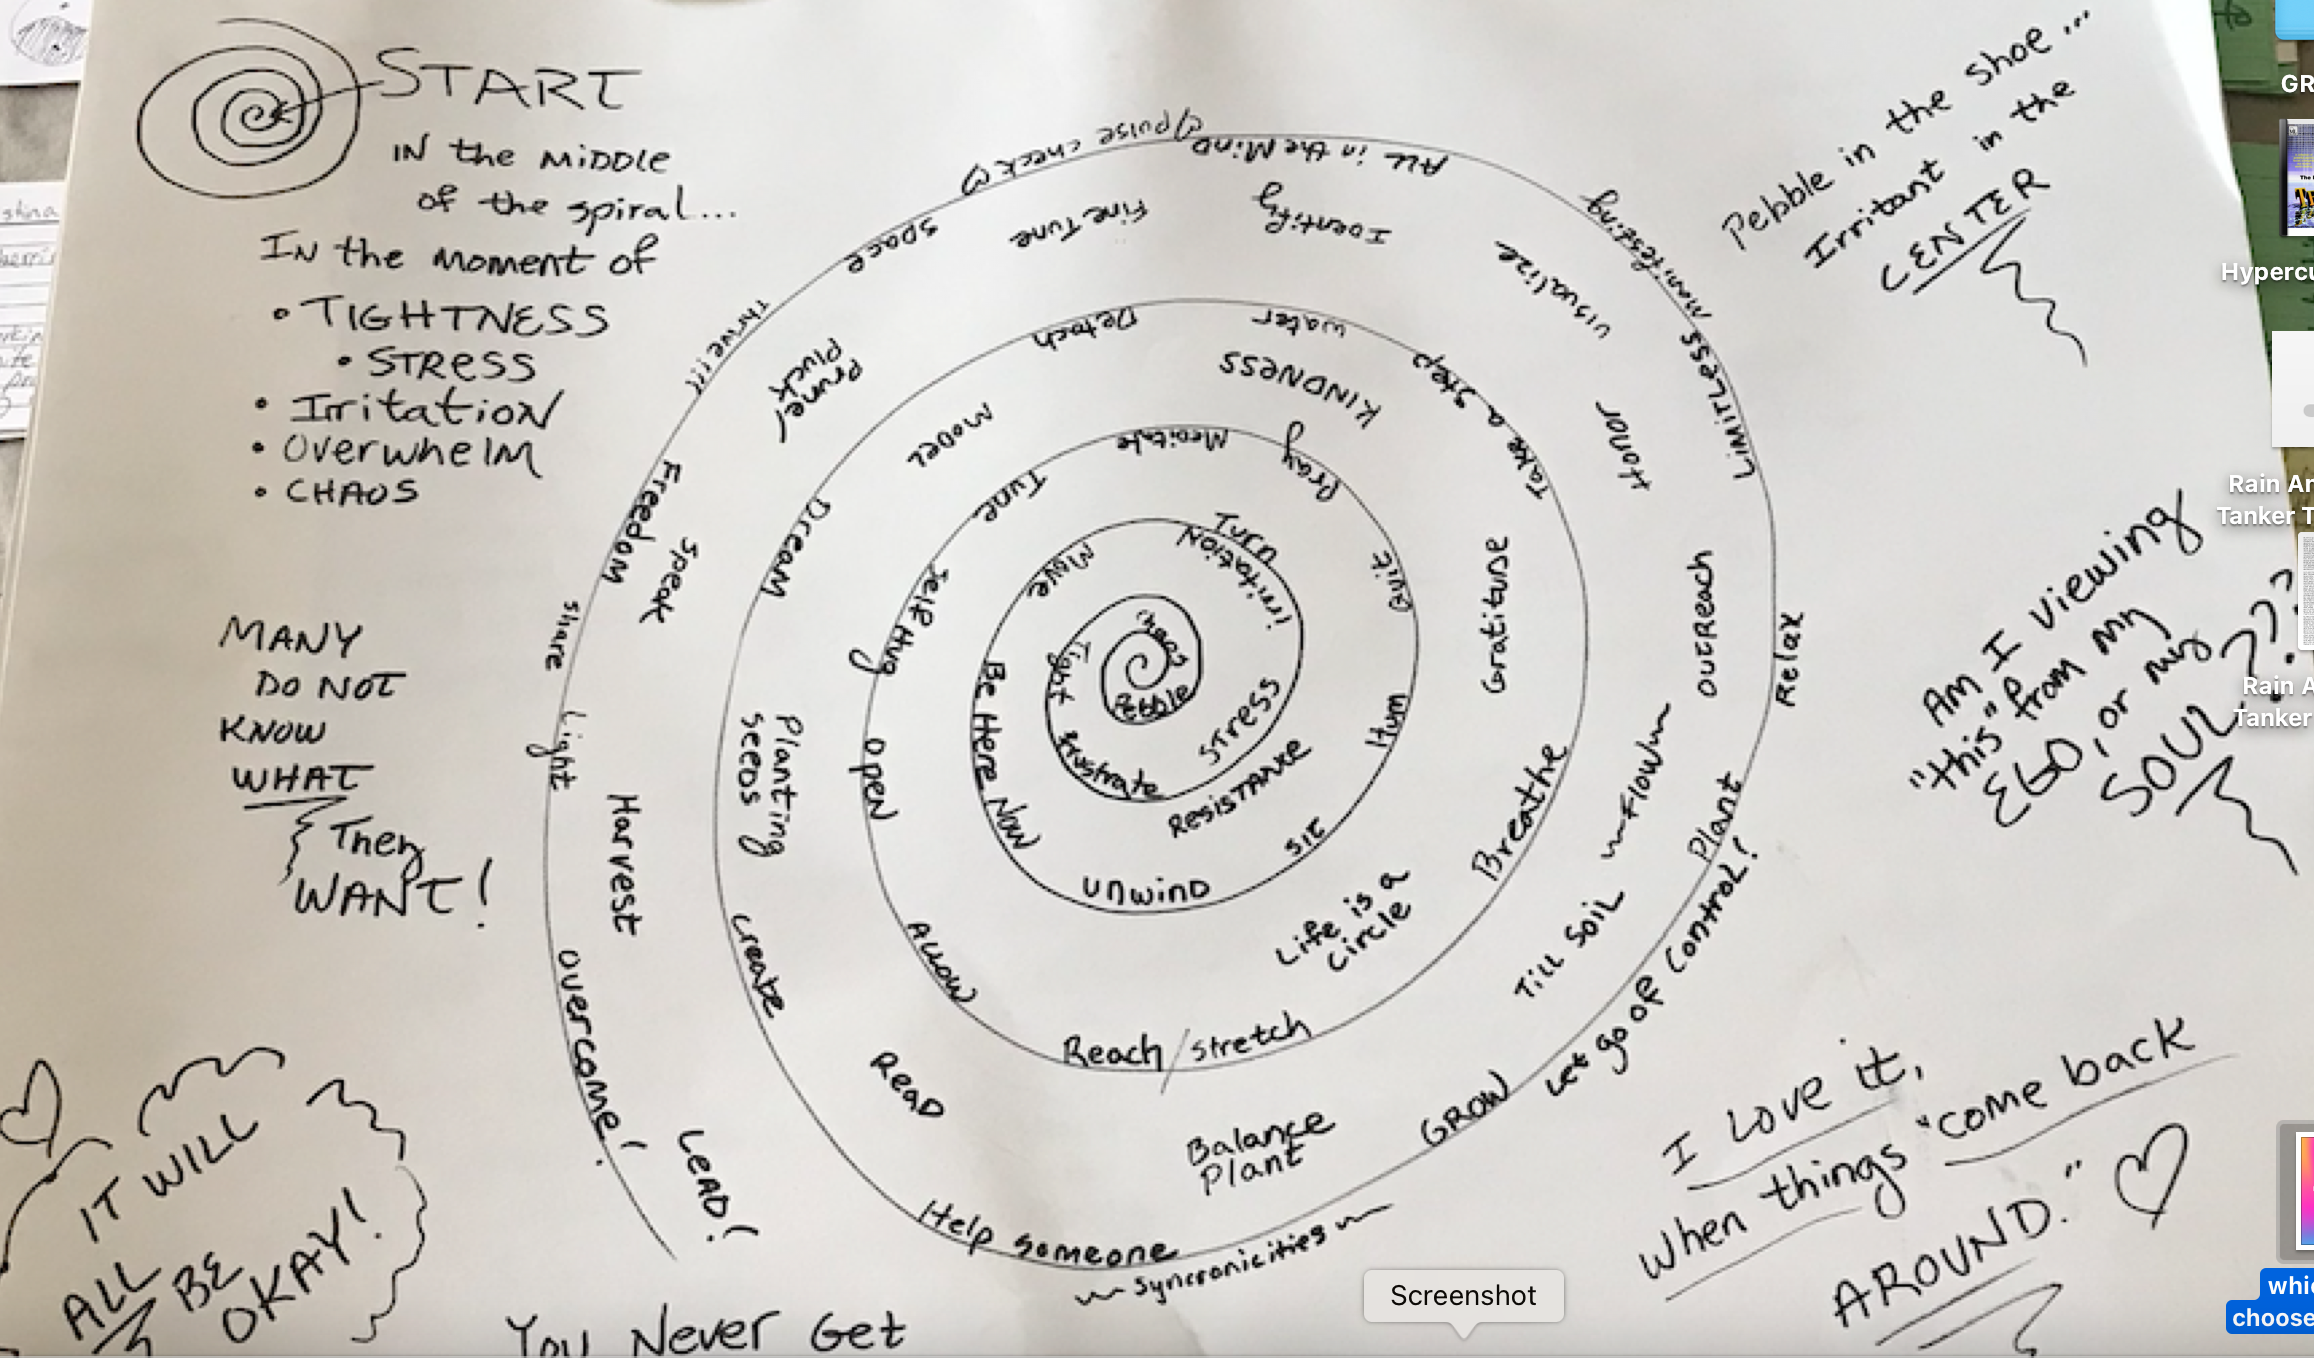 START
IN the MIDDLE
of the spiral...
IN the moment of
• TIGHTNESS
• STRESS
• Irritation
• Overwhelm
• CHAOS
MANY
DO NOT
KNOW
WHAT
They
WANT!
IT WILL
ALL BE
OKAY!
You Never Get
Pebble
Tight
Irritation
TURN
STRESS
frustrate
RESISTANCE
Move
Be Here Now
UNWIND
SIT
Hum
Quit
Pray
Meditate
Tune
Self Hug
OPEN
ALLOW
Reach/stretch
Life is a
circle
Breathe
Gratitude
Take a Step
KINDNESS
water
Detach
MODEL
Dream
Planting
seeds
create
READ
Help someone
Balance
Plant
~syncronicities~
GROW
Till Soil
~Flow~
OUTREACH
Honor
visualize
Identify
Fine Tune
Space
Prune/
Pluck
Speak
Harvest
LEAD!
Let go of Control!
Plant
Relax
LIMITLESS
manifesting
All in the Mind
pulse check
Thrive!!!
Freedom
share
Light
overcome!
Pebble in the shoe...
Irritant in the
CENTER
Am I viewing
"this" from my
EGO, or my
SOUL???
I Love it,
When things "come back
AROUND."
GR
Hypercu
Rain Ar
Tanker T
Rain A
Tanker
Screenshot
whic
choose